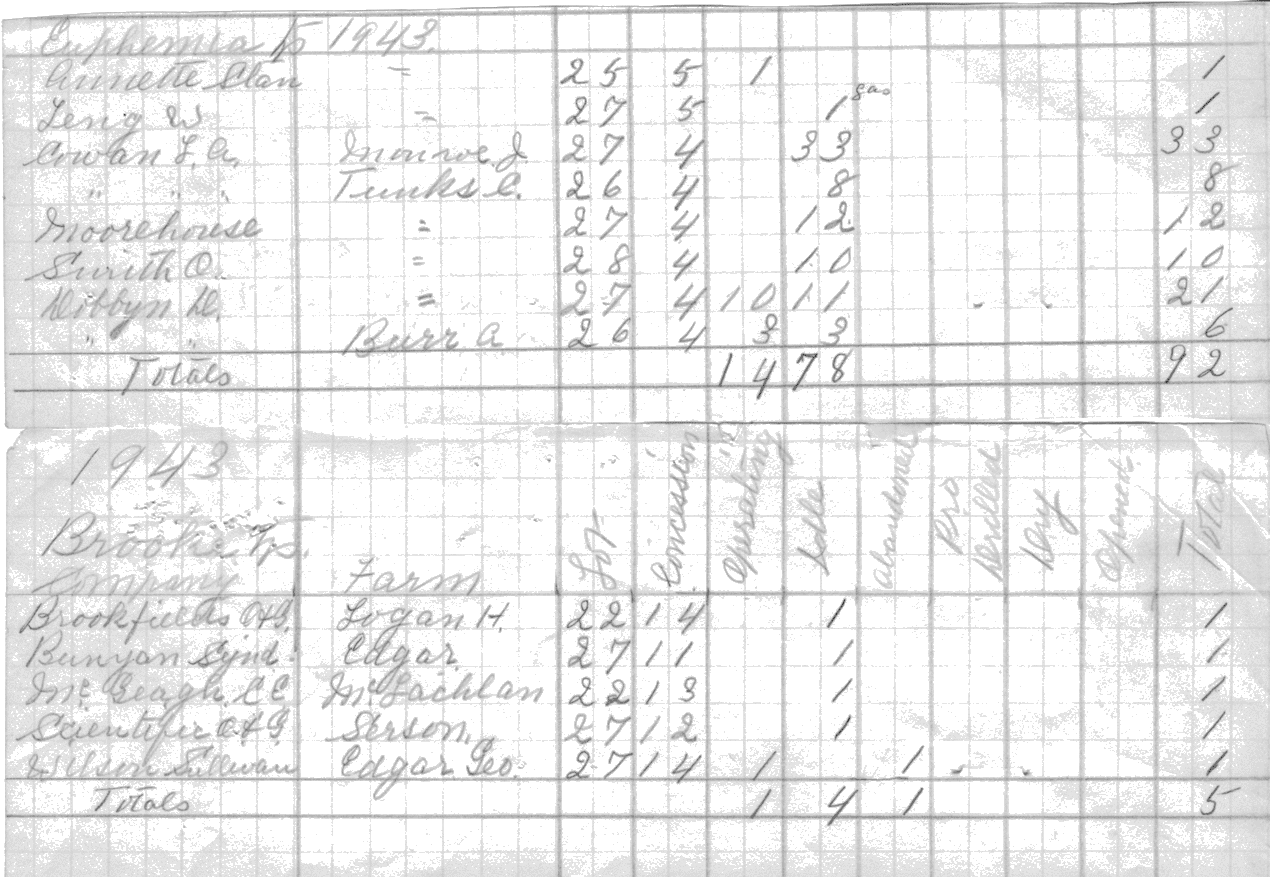 Euphemia Tp 1943.
Annette Stan = 25 5 1 1
Leng W = 27 5 1 gas 1
Cowan L.A. Monroe J 27 4 33 33
" " " Tunks C. 26 4 8 8
Moorehouse = 27 4 12 12
Smith O. = 28 4 10 10
Dobbyn D. = 27 4 10 11 - - 21
" " Burr A 26 4 3 3 6
Totals 14 78 92
1943
Brooke Tp.
Company Farm Lot Concession Operating Idle abandoned Pro Drilled Dry Opened Total
Brookfields O+G. Logan H. 22 14 1 1
Bunyan Synd. Edgar 27 11 1 1
Mc Geagh. C C McLachlan 22 13 1 1
Scientific O+G Serson. 27 12 1 1
Wilson Sullivan Edgar Geo. 27 14 1 1 - - 1
Totals 1 4 1 5